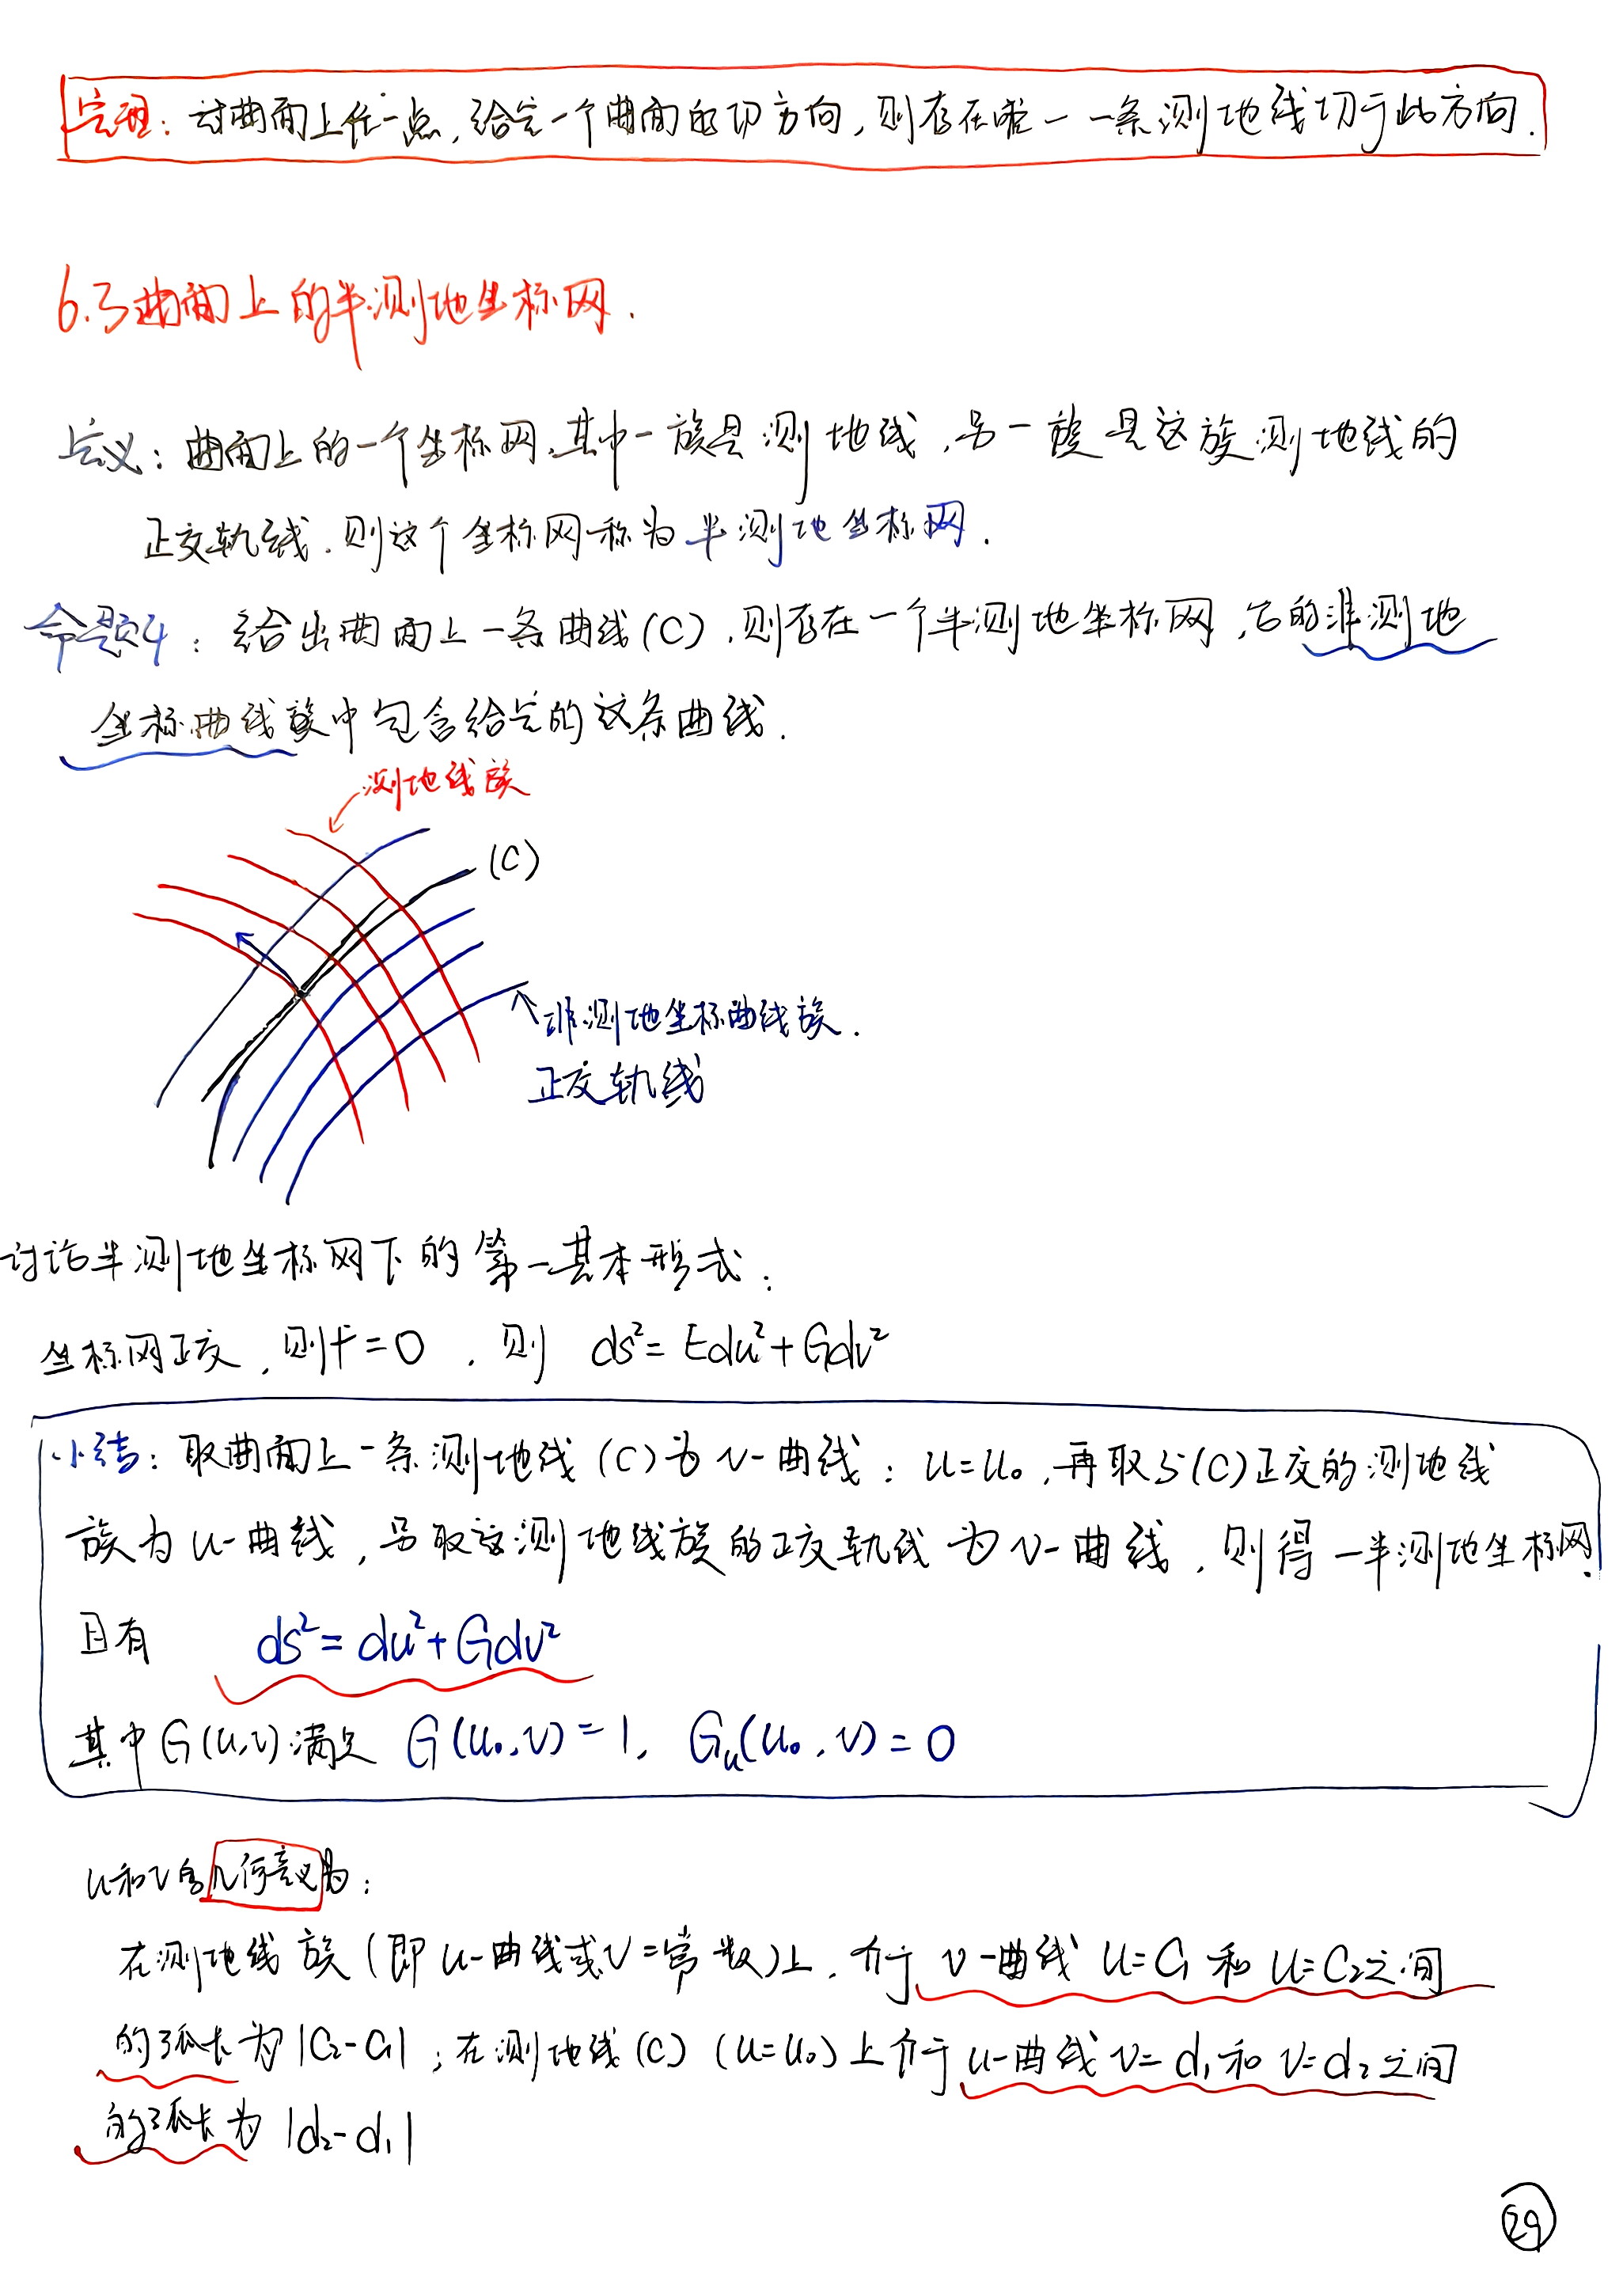 定理：过曲面上任一点，给定一个曲面的切方向，则存在唯一一条测地线切于此方向.
6.3 曲面上的半测地坐标网.
定义：曲面上的一个坐标网，其中一族是测地线，另一族是这族测地线的
正交轨线，则这个坐标网称为半测地坐标网.
命题4：给出曲面上一条曲线(C)，则存在一个半测地坐标网，它的非测地
坐标曲线族中包含给定的这条曲线.
测地线族
(C)
非测地坐标曲线族.
正交轨线
讨论半测地坐标网下的第一基本形式：
坐标网正交，则F=0，则 ds²=Edu²+Gdv²
小结：取曲面上一条测地线(C)为v-曲线：u=u₀，再取与(C)正交的测地线
族为u-曲线，另取这测地线族的正交轨线为v-曲线，则得一半测地坐标网.
且有 ds²=du²+Gdv²
其中G(u,v)满足 G(u₀,v)=1, Gᵤ(u₀,v)=0
u和v的几何意义为：
在测地线族(即u-曲线或v=常数)上，介于v-曲线u=C₁和u=C₂之间
的弧长为|C₂-C₁|；在测地线(C)(u=u₀)上介于u-曲线v=d₁和v=d₂之间
的弧长为|d₂-d₁|
29